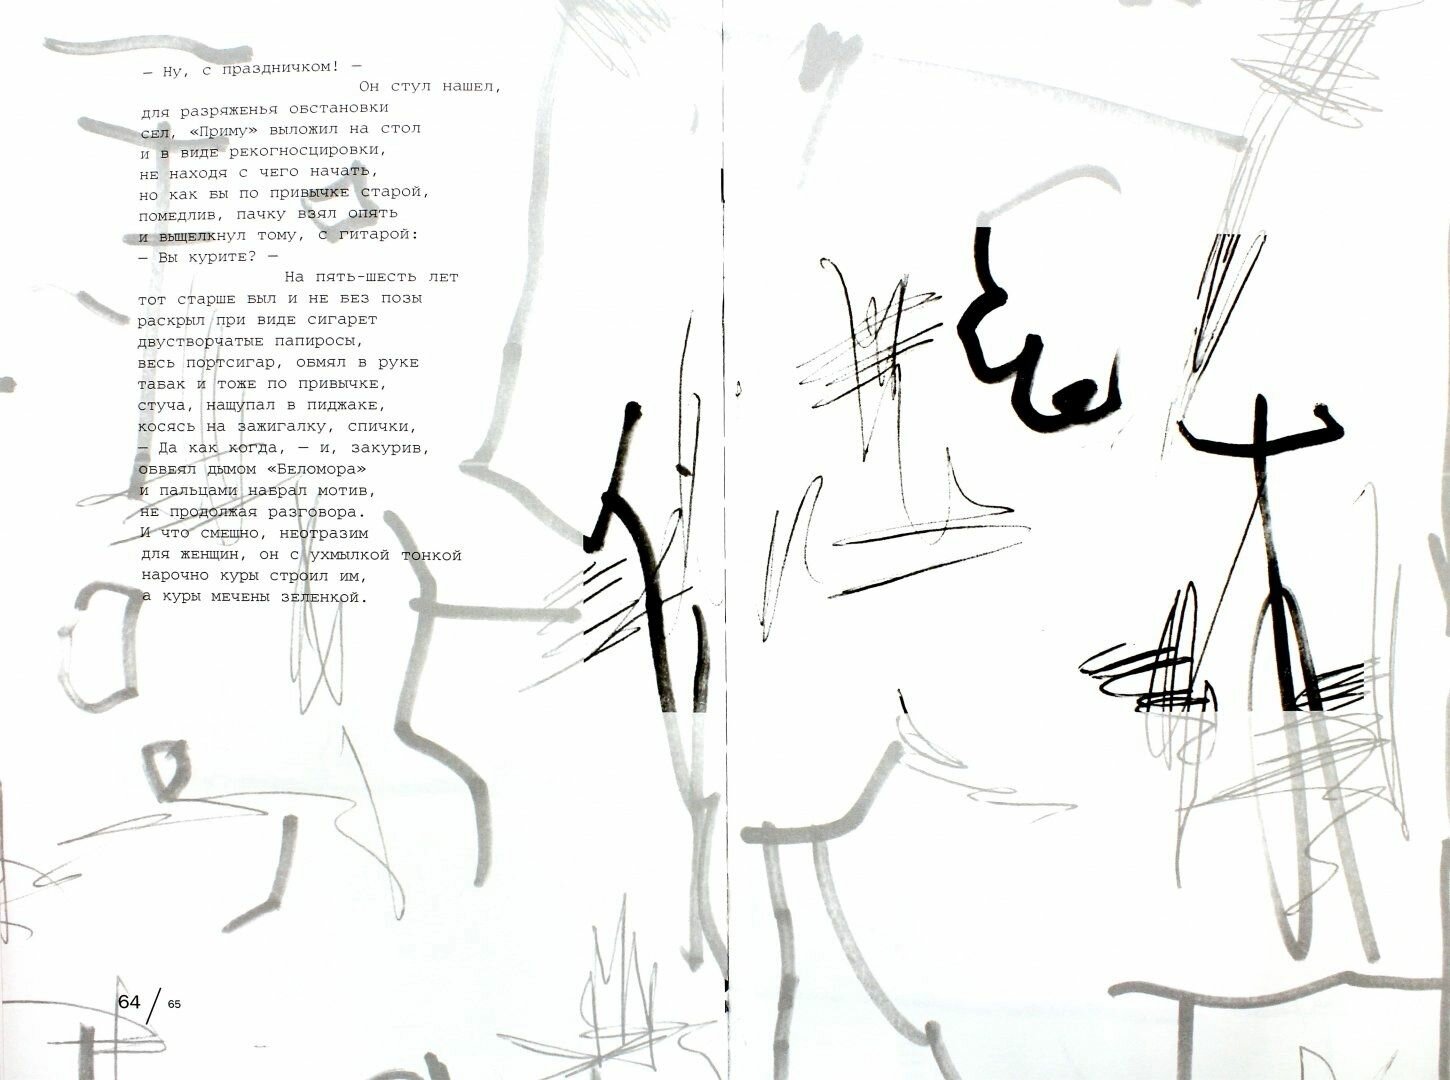 — Ну, с праздничком! —
Он стул нашел,
для разряженья обстановки
сел, «Приму» выложил на стол
и в виде рекогносцировки,
не находя с чего начать,
но как бы по привычке старой,
помедлив, пачку взял опять
и выщелкнул тому, с гитарой:
— Вы курите? —
На пять-шесть лет
тот старше был и не без позы
раскрыл при виде сигарет
двустворчатые папиросы,
весь портсигар, обмял в руке
табак и тоже по привычке,
стуча, нащупал в пиджаке,
косясь на зажигалку, спички,
— Да как когда, — и, закурив,
обвеял дымом «Беломора»
и пальцами набрал мотив,
не продолжая разговора.
И что смешно, неотразим
для женщин, он с ухмылкой тонкой
нарочно куры строил им,
а куры мечены зеленкой.
64 / 65